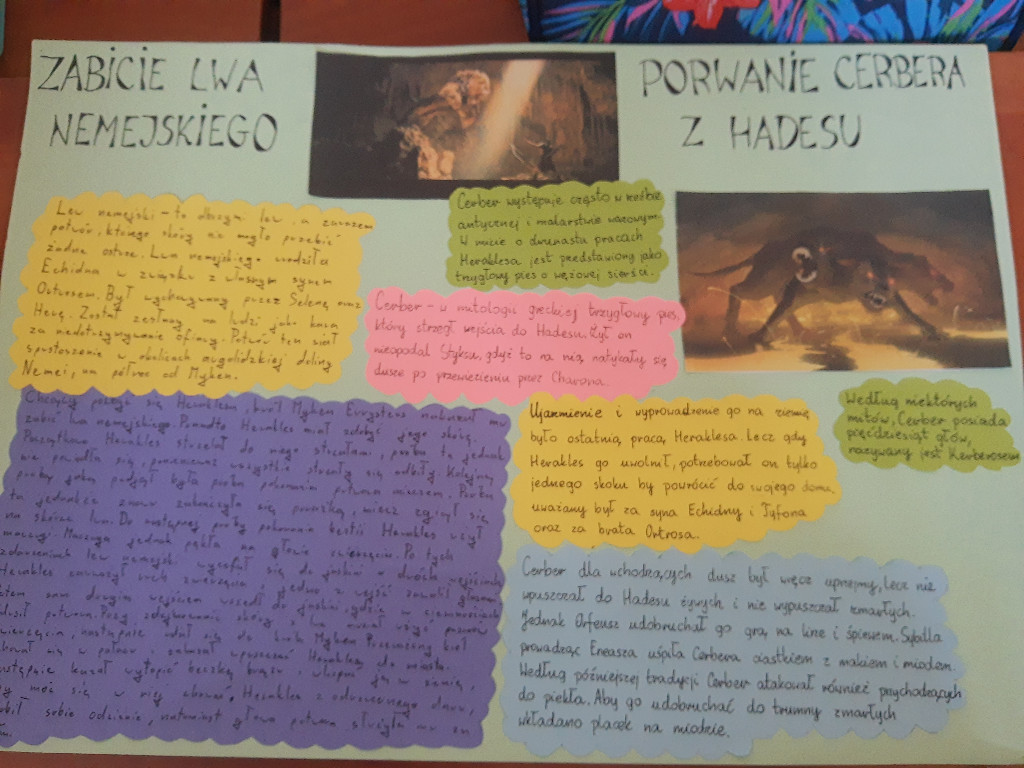 ZABICIE LWA
NEMEJSKIEGO
PORWANIE CERBERA
Z HADESU
Lew nemejski - to olbrzym lew, a zarazem
potwór, którego skóry nie mogło przebić
żadne ostrze. Lwa nemejskiego urodziła
Echidna w związku z własnym synem
Ortrosem. Był wychowywany przez Selenę oraz
Herę. Został zesłany na ludzi jako kara
za niedotrzymywanie ofiary. Potwór ten siał
spustoszenie w okolicach doliny
Nemei, na północ od Myken.
Cerber występuje często w rzeźbie
antycznej i malarstwie wazowym.
W micie o dwunastu pracach
Heraklesa jest przedstawiony jako
trzygłowy pies o wężowej sierści.
Cerber - w mitologii greckiej trzygłowy pies,
który strzegł wejścia do Hadesu. Był on
nieopodal Styksu, gdyż to na nią natykały się
dusze po przewiezieniu przez Charona.
Chcący pozbyć się Heraklesa, król Myken Eurysteus nakazał mu
zabić lwa nemejskiego. Ponadto Herakles miał zdobyć jego skórę.
Początkowo Herakles strzelał do niego strzałami, próba ta jednak
nie powiodła się, ponieważ wszystkie strzały się odbiły. Kolejną
próbą jaką podjął była próba pokonania potwora mieczem. Próba
ta jednakże znowu zakończyła się porażką, miecz zgiął się
na skórze lwa. Do następnej próby pokonania bestii Herakles użył
maczugi. Maczuga jednak pękła na głowie zwierzęcia. Po tych
zdarzeniach lew nemejski wycofał się do jaskini o dwóch wejściach.
Herakles jedno z wejść zawalił głazem,
zatem sam drugim wejściem wszedł do jaskini, gdzie w ciemnościach
udusił potwora. Przy zdejmowaniu skóry z lwa musiał użyć pazurów
zwierzęcia, następnie udał się do króla Myken. Przerażony król
schował się w pałacu i zabronił wpuszczać Heraklesa do miasta.
Następnie kazał wytopić beczkę z brązu i wkopać ją w ziemię,
by móc się w niej chować. Herakles z
zrobił sobie odzienie, natomiast głowa potwora służyła mu za
Ujarzmienie i wyprowadzenie go na ziemię
było ostatnią pracą Heraklesa. Lecz gdy
Herakles go uwolnił, potrzebował on tylko
jednego skoku by powrócić do swojego domu.
uważany był za syna Echidny i Tyfona
oraz za brata Ortrosa.
Według niektórych
mitów, Cerber posiada
pięćdziesiąt głów,
nazywany jest Kerberosem
Cerber dla wchodzących dusz był wręcz uprzejmy, lecz nie
wpuszczał do Hadesu żywych i nie wypuszczał zmarłych.
Jednak Orfeusz udobruchał go grą na lirze i śpiewem. Sybilla
prowadząc Eneasza uśpiła Cerbera ciastkiem z makiem i miodem.
Według późniejszej tradycji Cerber atakował również przychodzących
do piekła. Aby go udobruchać do trumny zmarłych
wkładano placek na miodzie.